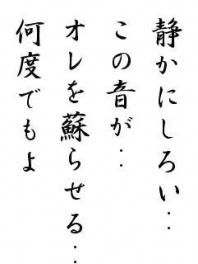 静かにしろい‥
この音が‥
オレを蘇らせる‥
何度でもよ